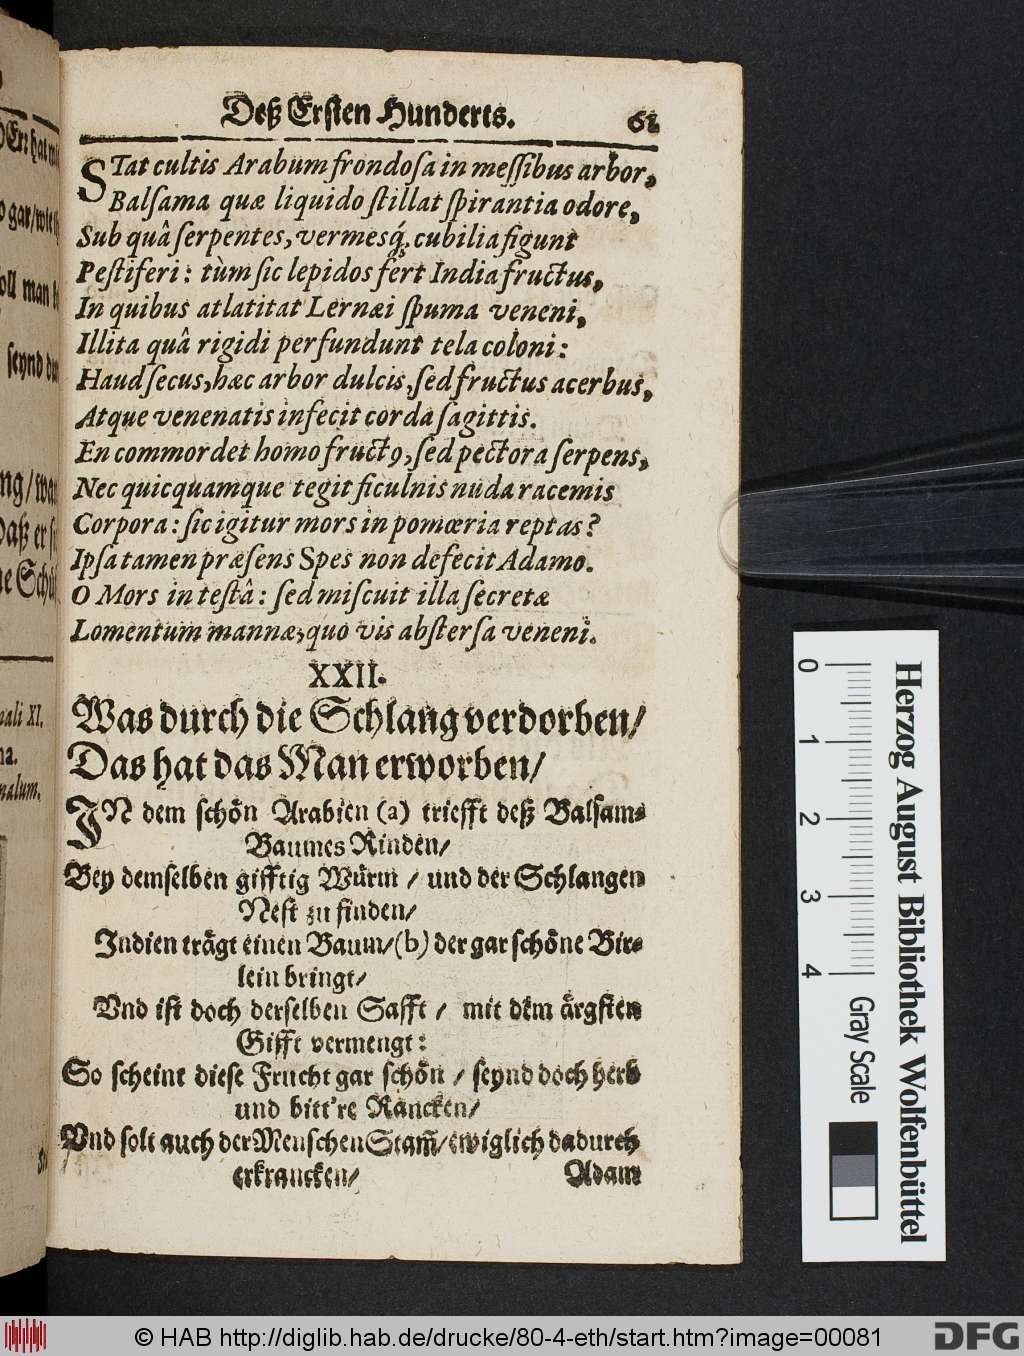 Deß Ersten Hunderts. 61
STat cultis Arabum frondoſa in meſſibus arbor,
Balſama quæ liquido ſtillat ſpirantia odore,
Sub quâ ſerpentes, vermesq́; cubilia figunt
Peſtiferi: tùm ſic lepidos fert India fructus,
In quibus at latitat Lernæi ſpuma veneni,
Illita quâ rigidi perfundunt tela coloni:
Haud ſecus, hæc arbor dulcis, ſed fructus acerbus,
Atque venenatis infecit corda ſagittis.
En commordet homo fruct9, ſed pectora ſerpens,
Nec quicquamque tegit ficulnis nuda racemis
Corpora: ſic igitur mors in pomœria reptas?
Ipſa tamen præſens Spes non defecit Adamo.
O Mors in teſtâ: ſed miſcuit illa ſecretæ
Lomentum mannæ, quo vis abſterſa veneni.
XXII.
Was durch die Schlang verdorben/
Das hat das Man erworben/
IN dem ſchön Arabien (a) triefft deß Balſam-
Baumes Rinden/
Bey demſelben gifftig Würm / und der Schlangen
Neſt zu finden/
Indien trägt einen Baum/ (b) der gar ſchöne Bir-
lein bringt/
Vnd iſt doch derſelben Safft / mit dem ärgſten
Gifft vermengt:
So ſcheint dieſe Frucht gar ſchön / ſeynd doch herb
und bitt're Rancken/
Vnd ſolt auch der Menſchen Stam̃/ ewiglich dadurch
erkrancken/ Adam
Er: hat
gar/wie
ſoll man
ſeynd
ng/
Daß er
XI.
malum.
0 1 2 3 4
Herzog August Bibliothek Wolfenbüttel
Gray Scale
© HAB http://diglib.hab.de/drucke/80-4-eth/start.htm?image=00081
DFG